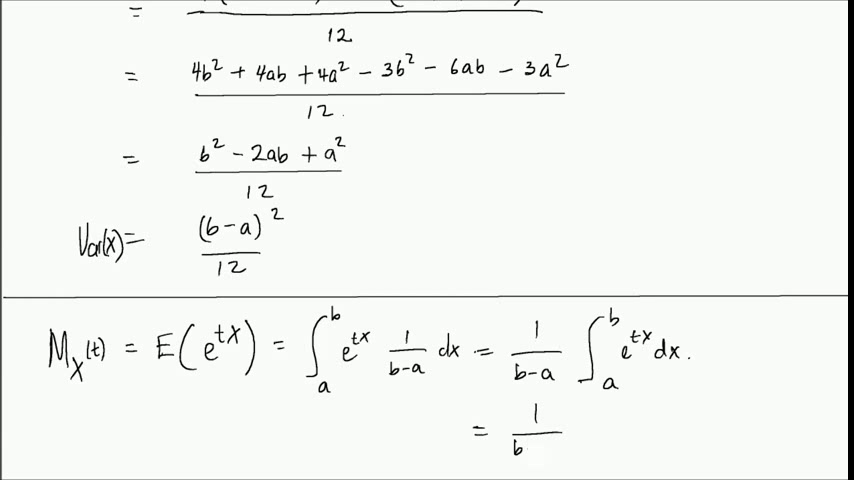 = 12
= 4b² + 4ab + 4a² - 3b² - 6ab - 3a² / 12.
= b² - 2ab + a² / 12
Var(X) = (b-a)² / 12
M_X(t) = E(e^{tX}) = ∫_a^b e^{tx} 1/(b-a) dx = 1/(b-a) ∫_a^b e^{tx} dx.
= 1/b